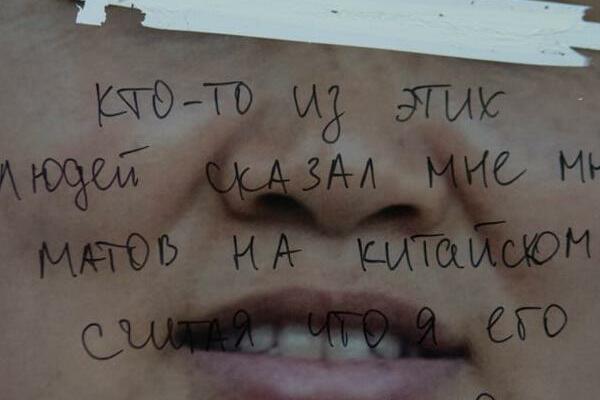 кто-то из этих
людей сказал мне
матов на китайском
считая что я его